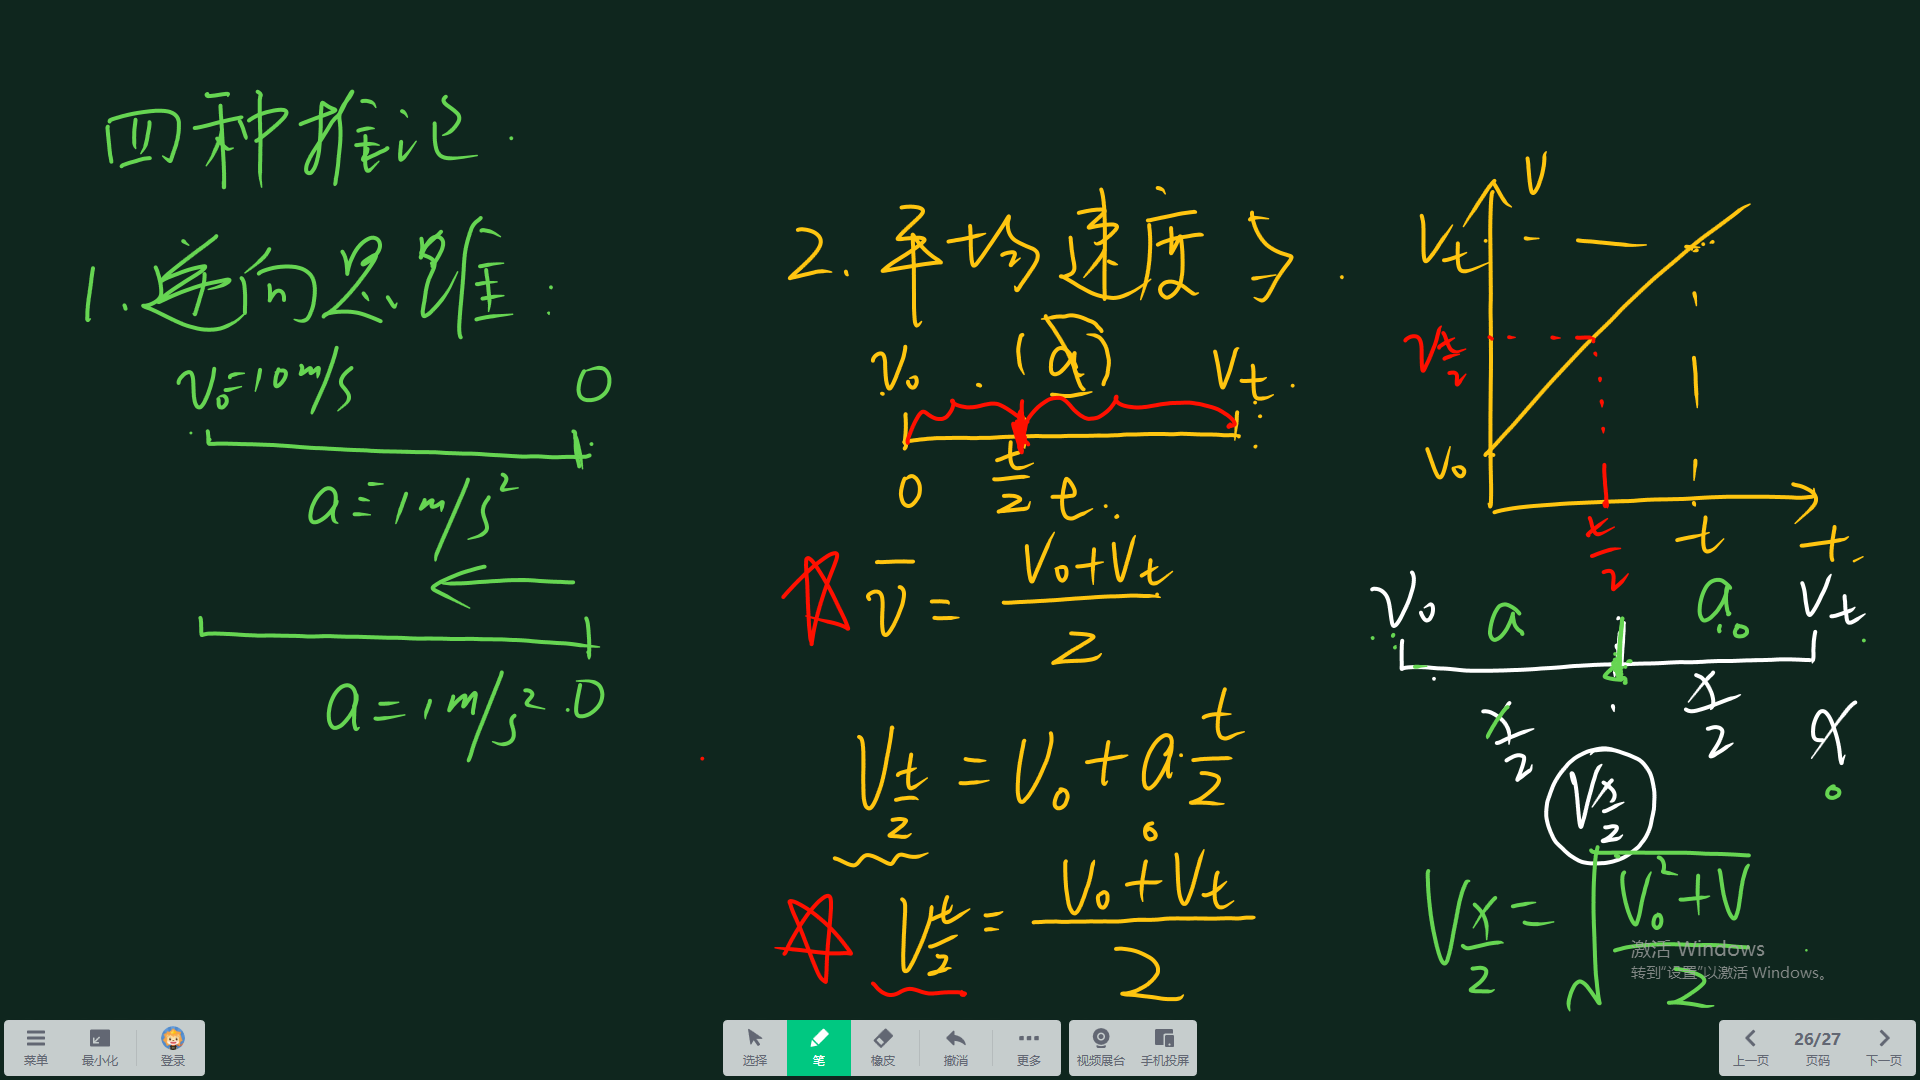 四种推论.
1.逆向思维:
V₀=10m/s 0
a=1m/s²
a=1m/s² 0
2.平均速度与
V₀ (a) Vt
0 t/2 t
V̄ = (V₀+Vt)/2
V t/2 = V₀ + a·t/2
V t/2 = (V₀+Vt)/2
V
Vt
V t/2
V₀
t/2 t t
V₀ a a Vt
x/2 x/2 x
V x/2
V x/2 = √((V₀²+V)/2)
激活 Windows
转到“设置”以激活 Windows。
菜单 最小化 登录
选择 笔 橡皮 撤消 更多
视频展台 手机投屏
上一页 26/27 页码 下一页